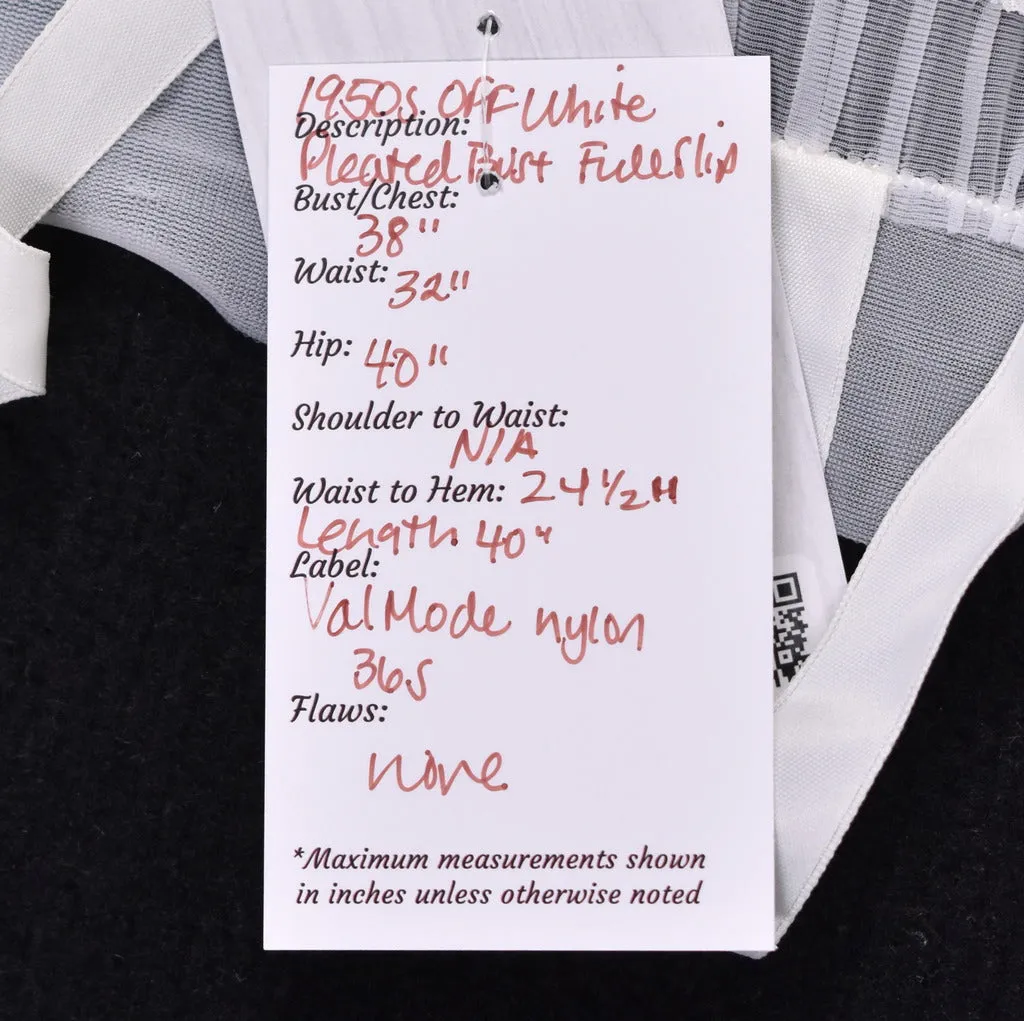 1950s Off White
Description:
Pleated Bust Full Slip
Bust/Chest:
38"
Waist: 32"
Hip: 40"
Shoulder to Waist:
N/A
Waist to Hem: 24 1/2"
Length 40"
Label:
Val Mode nylon
36S
Flaws:
none
*Maximum measurements shown
in inches unless otherwise noted